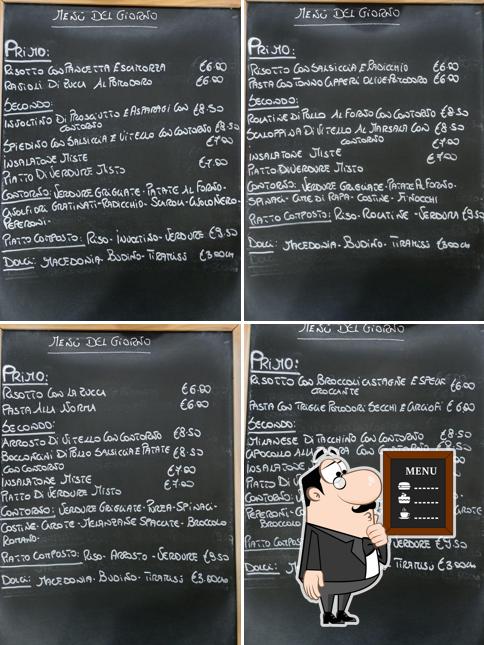 MENÙ DEL GIORNO
PRIMO:
RISOTTO CON PANCETTA E SCAMORZA €6.00
RAVIOLI DI ZUCCA AL POMODORO €6.00
SECONDO:
INVOLTINO DI PROSCIUTTO E ASPARAGI CON €8.50
CONTORNO
SPIEDINO CON SALSICCIA E VITELLO CON CONTORNO €8.50
INSALATONE MISTE €7.00
PIATTO DI VERDURE MISTO €7.00
CONTORNO: VERDURE GRIGLIATE - PATATE AL FORNO -
CAVOLFIORI GRATINATI - RADICCHIO - SCAROLA - CAVOLO NERO -
PEPERONI -
PIATTO COMPOSTO: RISO - INVOLTINO - VERDURE €9.50
DOLCI: MACEDONIA - BUDINO - TIRAMISÙ €3.00
MENÙ DEL GIORNO
PRIMO:
RISOTTO CON SALSICCIA E RADICCHIO €6.00
PASTA CON TONNO CAPPERI OLIVE POMODORO €6.00
SECONDO:
ROLATINE DI POLLO AL FORNO CON CONTORNO €8.50
SCALOPPINA DI VITELLO AL MARSALA CON €8.50
CONTORNO
INSALATONE MISTE €7.00
PIATTO DI VERDURE MISTO €7.00
CONTORNO: VERDURE GRIGLIATE - PATATE AL FORNO -
SPINACI - CIME DI RAPA - COSTINE - FINOCCHI
PIATTO COMPOSTO: RISO - ROLATINE - VERDURA €9.50
DOLCI: MACEDONIA - BUDINO - TIRAMISÙ €3.00
MENÙ DEL GIORNO
PRIMO:
RISOTTO CON LA ZUCCA €6.00
PASTA ALLA NORMA €6.00
SECONDO:
ARROSTO DI VITELLO CON CONTORNO €8.50
BOCCONCINI DI POLLO SALSICCIA E PATATE €8.50
CON CONTORNO
INSALATONE MISTE €7.00
PIATTO DI VERDURE MISTO €7.00
CONTORNO: VERDURE GRIGLIATE - PUREA - SPINACI -
COSTINE - CAROTE - MELANZANE SPACCATE - BROCCOLO
ROMANO -
PIATTO COMPOSTO: RISO - ARROSTO - VERDURE €9.50
DOLCI: MACEDONIA - BUDINO - TIRAMISÙ €3.00
MENÙ DEL GIORNO
PRIMO:
RISOTTO CON BROCCOLI CASTAGNE E SPECK €6.00
CROCCANTE
PASTA CON TRIGLIE POMODORI SECCHI E CARCIOFI €6.00
SECONDO:
MILANESE DI TACCHINO CON CONTORNO €8.50
CON CONTORNO €8.50
INSALATONE
PIATTO DI
CONTORNO:
PEPERONI
BROCCOLO
PIATTO COMPOS VERDURE €9.50
DOLCI: TIRAMISÙ €3.00
MENU